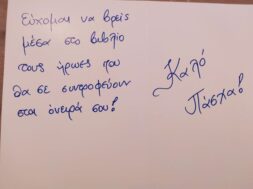 Εύχομαι να βρεις
μέσα στο βιβλίο
τους ήρωες που
θα σε συντροφεύουν
στα όνειρά σου!
Καλό
Πάσχα!